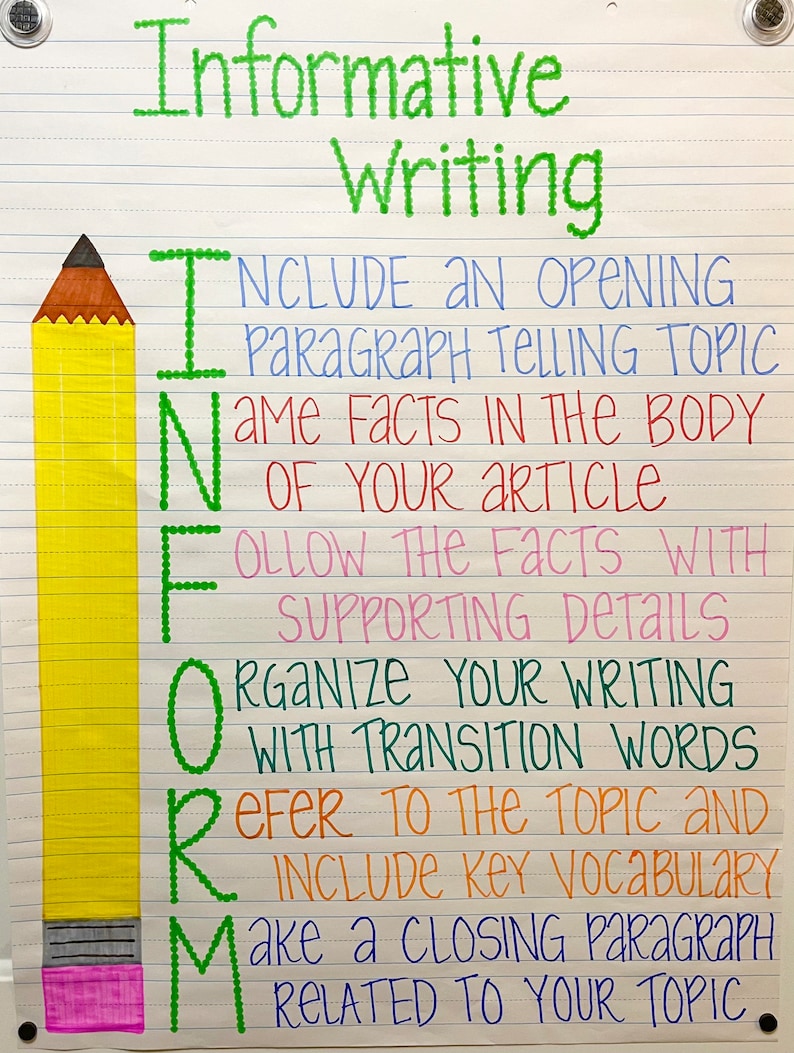 Informative
Writing
INCLUDE aN OPENING
PARaGRAPH TeLLING TOPIC
NaMe FaCTS IN THe BODY
OF YOUR aRTICLe
FOLLOW THe FaCTS WITH
SUPPORTING DeTaILS
ORGaNIZe YOUR WRITING
WITH TRaNSITION WORDS
ReFeR TO THe TOPIC aND
INCLUDe KeY VOCaBULaRY
MaKe a CLOSING PaRaGRaPH
ReLATeD TO YOUR TOPIC